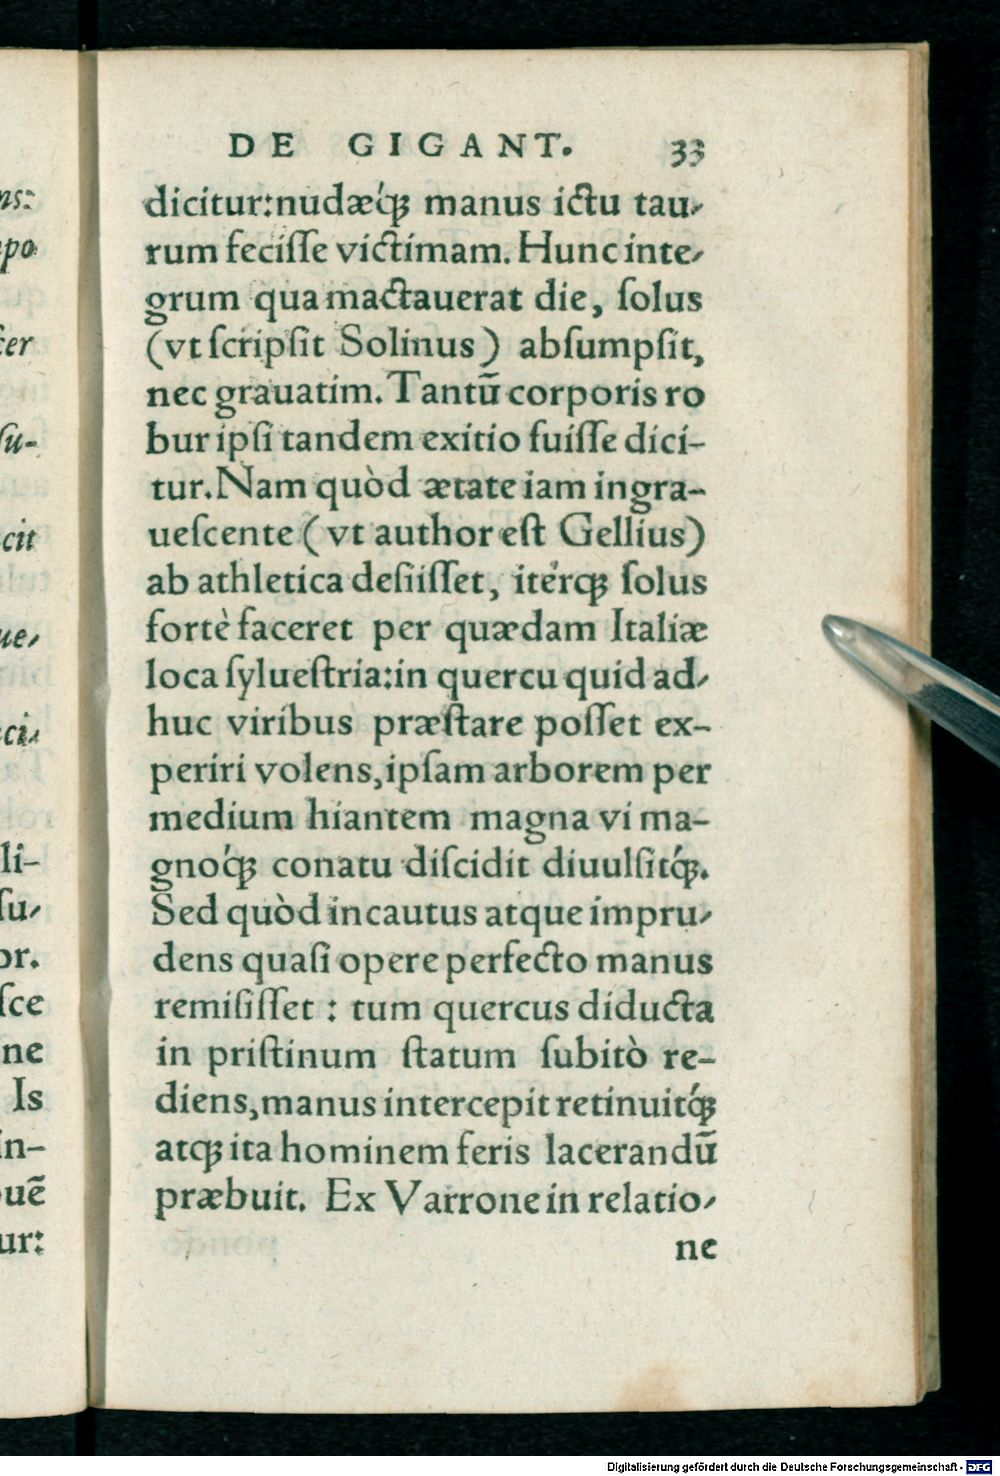 DE GIGANT. 33
dicitur:nudæq́ꝫ manus ictu tau⸗
rum feciſſe victimam. Hunc inte⸗
grum qua mactauerat die, ſolus
(vt ſcripſit Solinus) abſumpſit,
nec grauatim. Tantũ corporis ro
bur ipſi tandem exitio fuiſſe dici-
tur. Nam quòd ætate iam ingra-
ueſcente (vt author eſt Gellius)
ab athletica deſiiſſet, itérqꝫ ſolus
fortè faceret per quædam Italiæ
loca ſylueſtria:in quercu quid ad⸗
huc viribus præſtare poſſet ex-
periri volens,ipſam arborem per
medium hiantem magna vi ma-
gnoq́ꝫ conatu diſcidit diuulſitq́ꝫ.
Sed quòd incautus atque impru⸗
dens quaſi opere perfecto manus
remiſiſſet : tum quercus diducta
in priſtinum ſtatum ſubitò re-
diens,manus intercepit retinuitq́ꝫ
atqꝫ ita hominem feris lacerandũ
præbuit. Ex Varrone in relatio⸗
ne
ns:
po
cer
ſu-
cit
ue⸗
ci⸗
li-
ſu⸗
or.
ſce
ne
Is
in-
uẽ
ur:
Digitalisierung gefördert durch die Deutsche Forschungsgemeinschaft - DFG